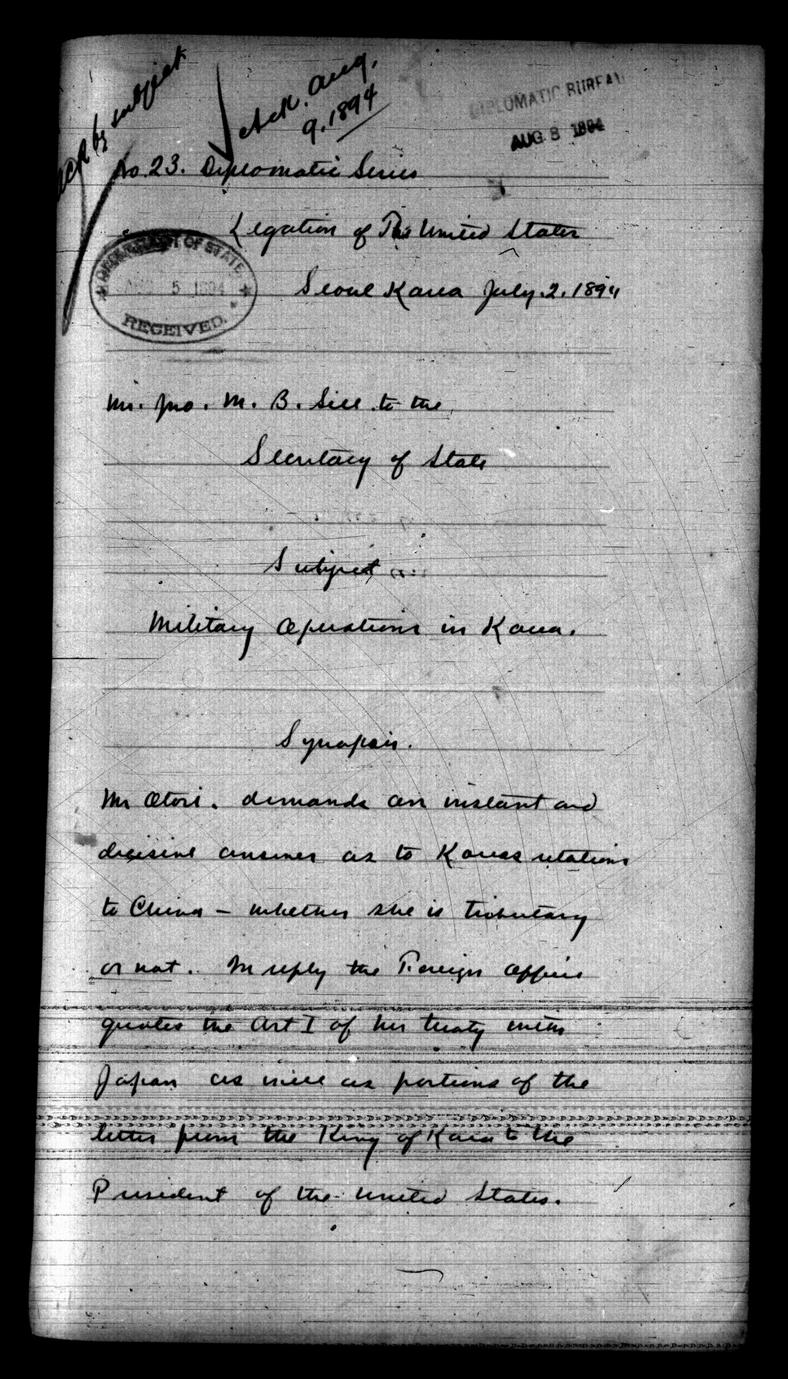 Ack by subject
Ack. Aug.
9. 1894
DIPLOMATIC BUREAU
AUG 8 1894
No. 23. Diplomatic Series
Legation of The United States
DEPARTMENT OF STATE
AUG 5 1894
RECEIVED.
Seoul Korea July. 2. 1894
Mr. Jno. M. B. Sill to the
Secretary of State
Subject
Military Operations in Korea.
Synopsis.
Mr Otori. demands an instant and
decisive answer as to Koreas relations
to China – whether she is tributary
or not. In reply the Foreign Office
quotes the Art I of her treaty with
Japan as well as portions of the
letter from the King of Korea to the
President of the United States.